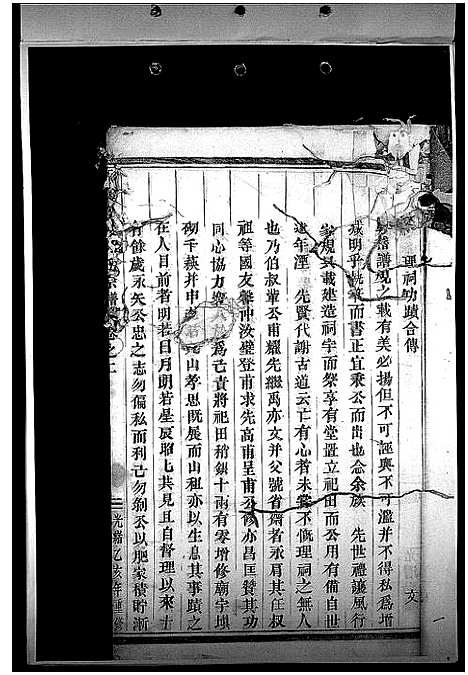 理祠功蹟合傳
舊譜觀之載有美必揚但不可誣與不可濫並不得私爲增
減明乎統章而書正宜秉公而出也念余族　先世禮讓風行
家規具載建造祠宇而祭享有堂置立祀田而公用有備自世
遠年湮　先賢代謝古道云亡有心者未嘗不慨理祠之無人
也乃伯叔輩公甫耀先繼禹亦文并父號省齋者承肩其任叔
祖等國友 仲汝璧登甫求先高甫呈甫公修亦昌匡贊其功
同心協力 爲己責將祀田稍鎖十兩有零增修廟宇墳
砌千秩并申 山孝思既展而山租亦以生息其事蹟之
在人目前者明若日月朗若星辰昭七共見且自督理以來十
有餘歲永矢公忠之志勿偏私而利己勿剝公以肥家積貯漸
文
一
宗譜 卷之二
光緒乙亥年重修